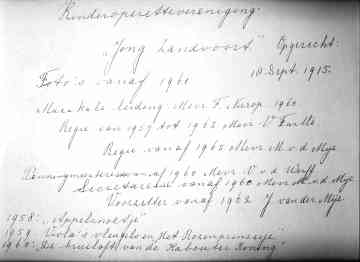 Kinderoperettevereniging:
"Jong Zandvoort" Opgericht:
Foto's vanaf 1961 10 Sept. 1915.
Muzikale leiding Mevr. F. 1960
Regie van 1957 tot 1962 Mevr. V.
Regie vanaf 1962 Mevr. M. v. d. Mije
Penningmeesteresse vanaf 1960 Mevr. V. v. d. Werff
Secretaresse vanaf 1960 Mevr. M. v. d. Mije
Voorzitter vanaf 1962 J. van der Mije
1958: "Appelsnoetje"
1959: Viola's vleugels en Het Rozenprinsesje"
1960: "De bruiloft van de Kabouter Koning"